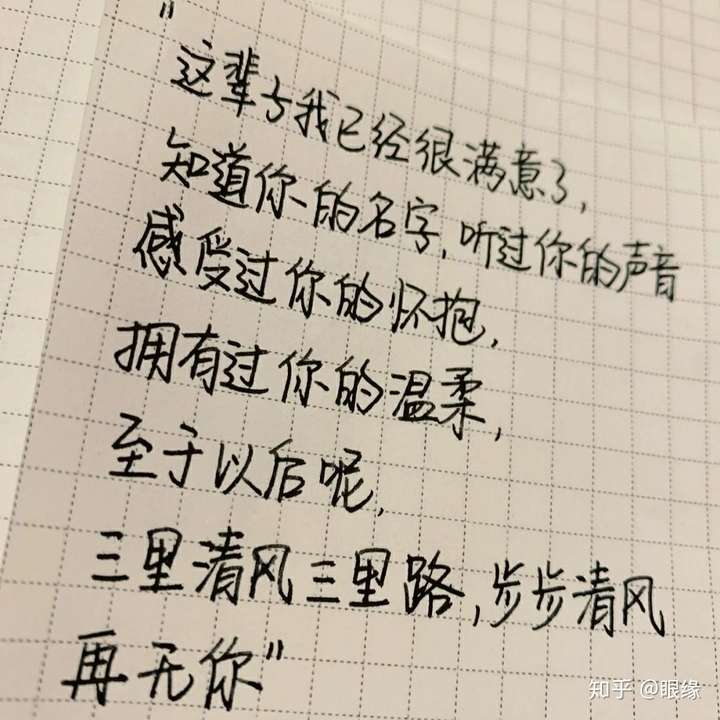 "
这辈子我已经很满意了,
知道你的名字,听过你的声音
感受过你的怀抱,
拥有过你的温柔,
至于以后呢,
三里清风三里路,步步清风
再无你"
知乎 @眼缘